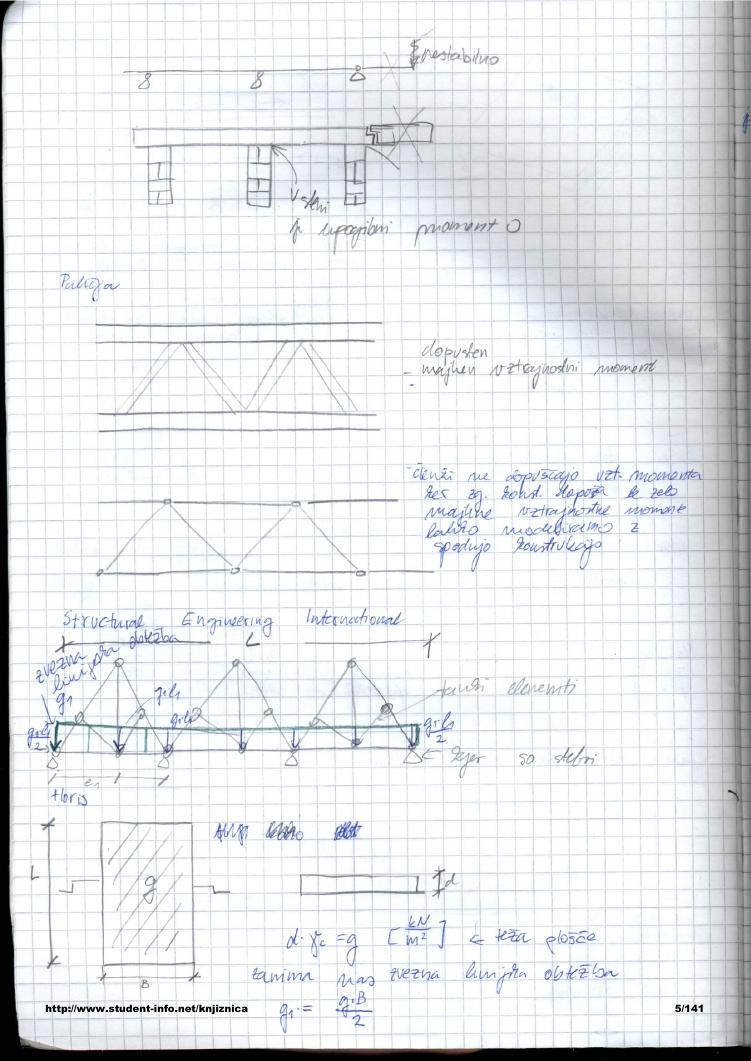 nestabilno
V steni
je upogibni moment 0
Paličja
dopusten
- majhen vztrajnostni moment
členki ne dopuščajo vzt. momenta
ker zg. konst. dopušča le zelo
majhne vztrajnostne momente
lahko modeliramo z
spodnjo konstrukcijo
Structural Engineering International
zvezna
linijska obtežba
g₁
L
g₁·l₁
g₁·l₁
g₁·l₁/2
g₁·l₁/2
tanki elementi
← kjer so stebri
l₁
tloris
L
g
B
d
d·γc = g [kN/m²] ← teža plošče
zanima nas zvezna linijska obtežba
g₁ = g·B/2
http://www.student-info.net/knjiznica
5/141